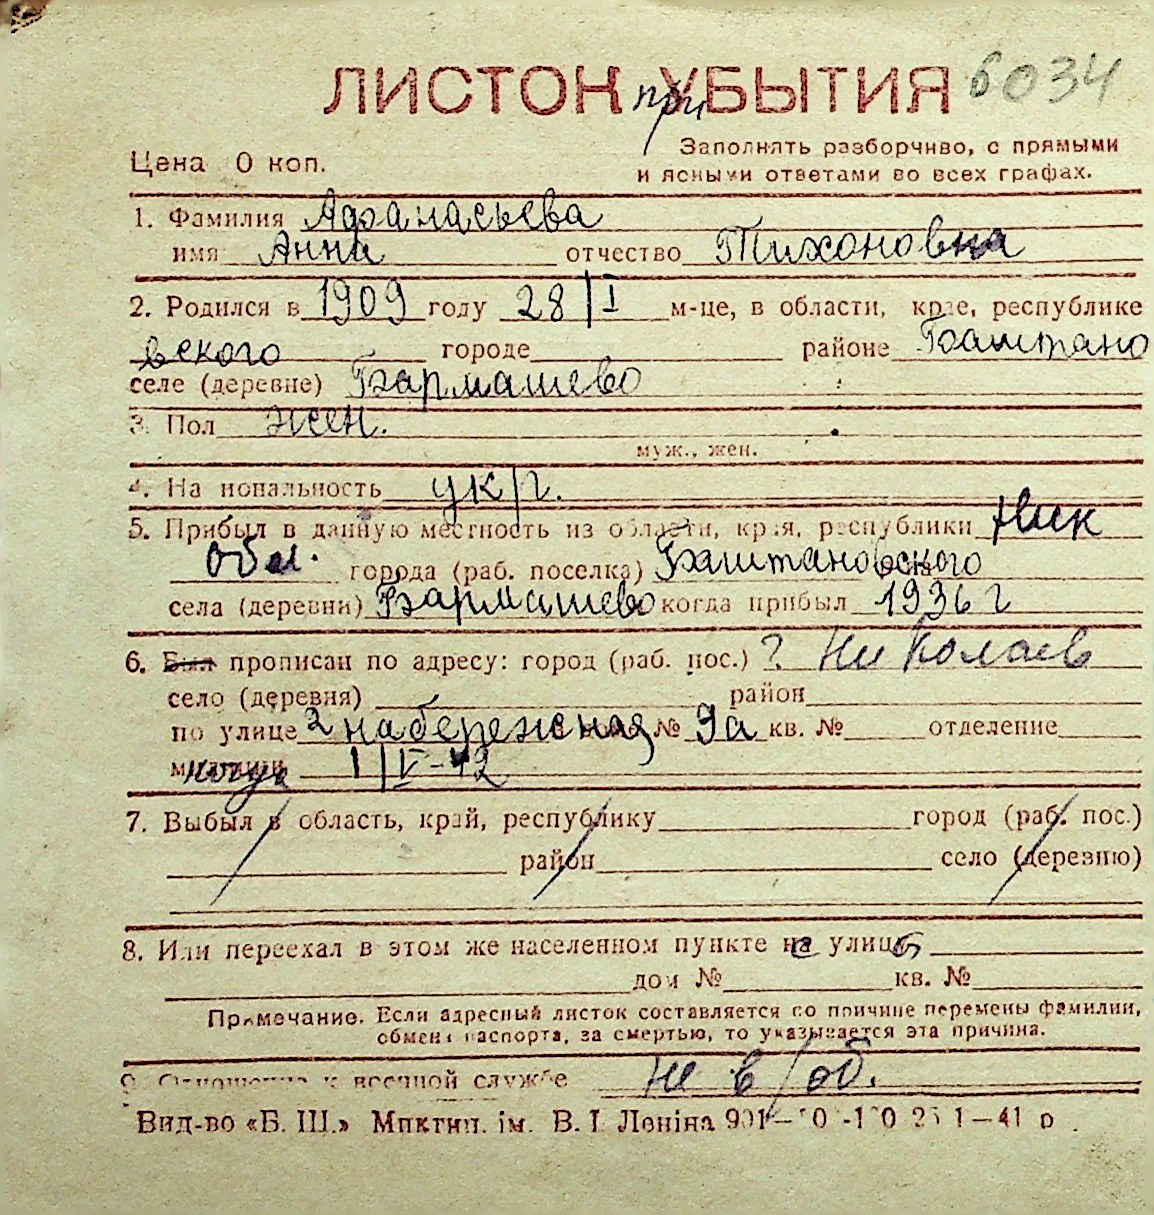 ЛИСТОК при УБЫТИЯ 6034
Цена 0 коп.
Заполнять разборчиво, с прямыми
и ясными ответами во всех графах.
1. Фамилия Афанасьева
имя Анна отчество Тихоновна
2. Родился в 1909 году 28/I м-це, в области, крае, республике
вского городе районе Баштано
селе (деревне) Бармашево
3. Пол жен.
муж., жен.
4. Национальность укр.
5. Прибыл в данную местность из области, края, республики Ник
обл. города (раб. поселка) Баштановского
села (деревни) Бармашево когда прибыл 1936 г
6. Был прописан по адресу: город (раб. пос.) г. Николаев
село (деревня) район
по улице 2 набережная № 9а кв. № отделение
милиции 1/V-42
7. Выбыл в область, край, республику город (раб. пос.)
район село (деревню)
8. Или переехал в этом же населенном пункте на улицу
дом № кв. №
Примечание. Если адресный листок составляется по причине перемены фамилии,
обмена паспорта, за смертью, то указывается эта причина.
9. Отношение к военной службе не в/об.
Вид-во «Б. Ш.» Миктип. ім. В. І. Леніна 1—41 р.